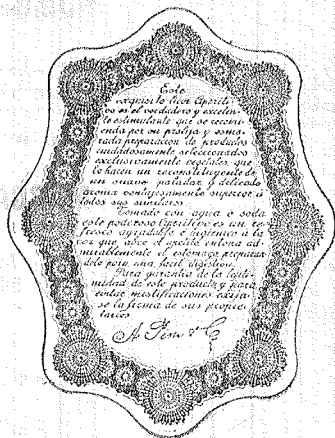 Este
exquisito licor Aperiti-
vo es el verdadero y excelen-
te estimulante que se recomi-
enda por su prolija y esme-
rada preparacion de productos
cuidadosamente seleccionados
exclusivamente vegetales, que
lo hacen un reconstituyente de
un suave paladar y delicado
aroma ventajosamente superior á
todos sus similares
Tomado con agua o soda
este poderoso Aperitivo es un re-
fresco agradable é higienico á la
vez que abre el apetito entona ad-
mirablemente el estomago preparan-
dolo para una facil digestion.
Para garantia de la legiti-
midad de este producto y para
evitar mistificaciones exija-
se la firma de sus propie-
tarios
A. Pini y C